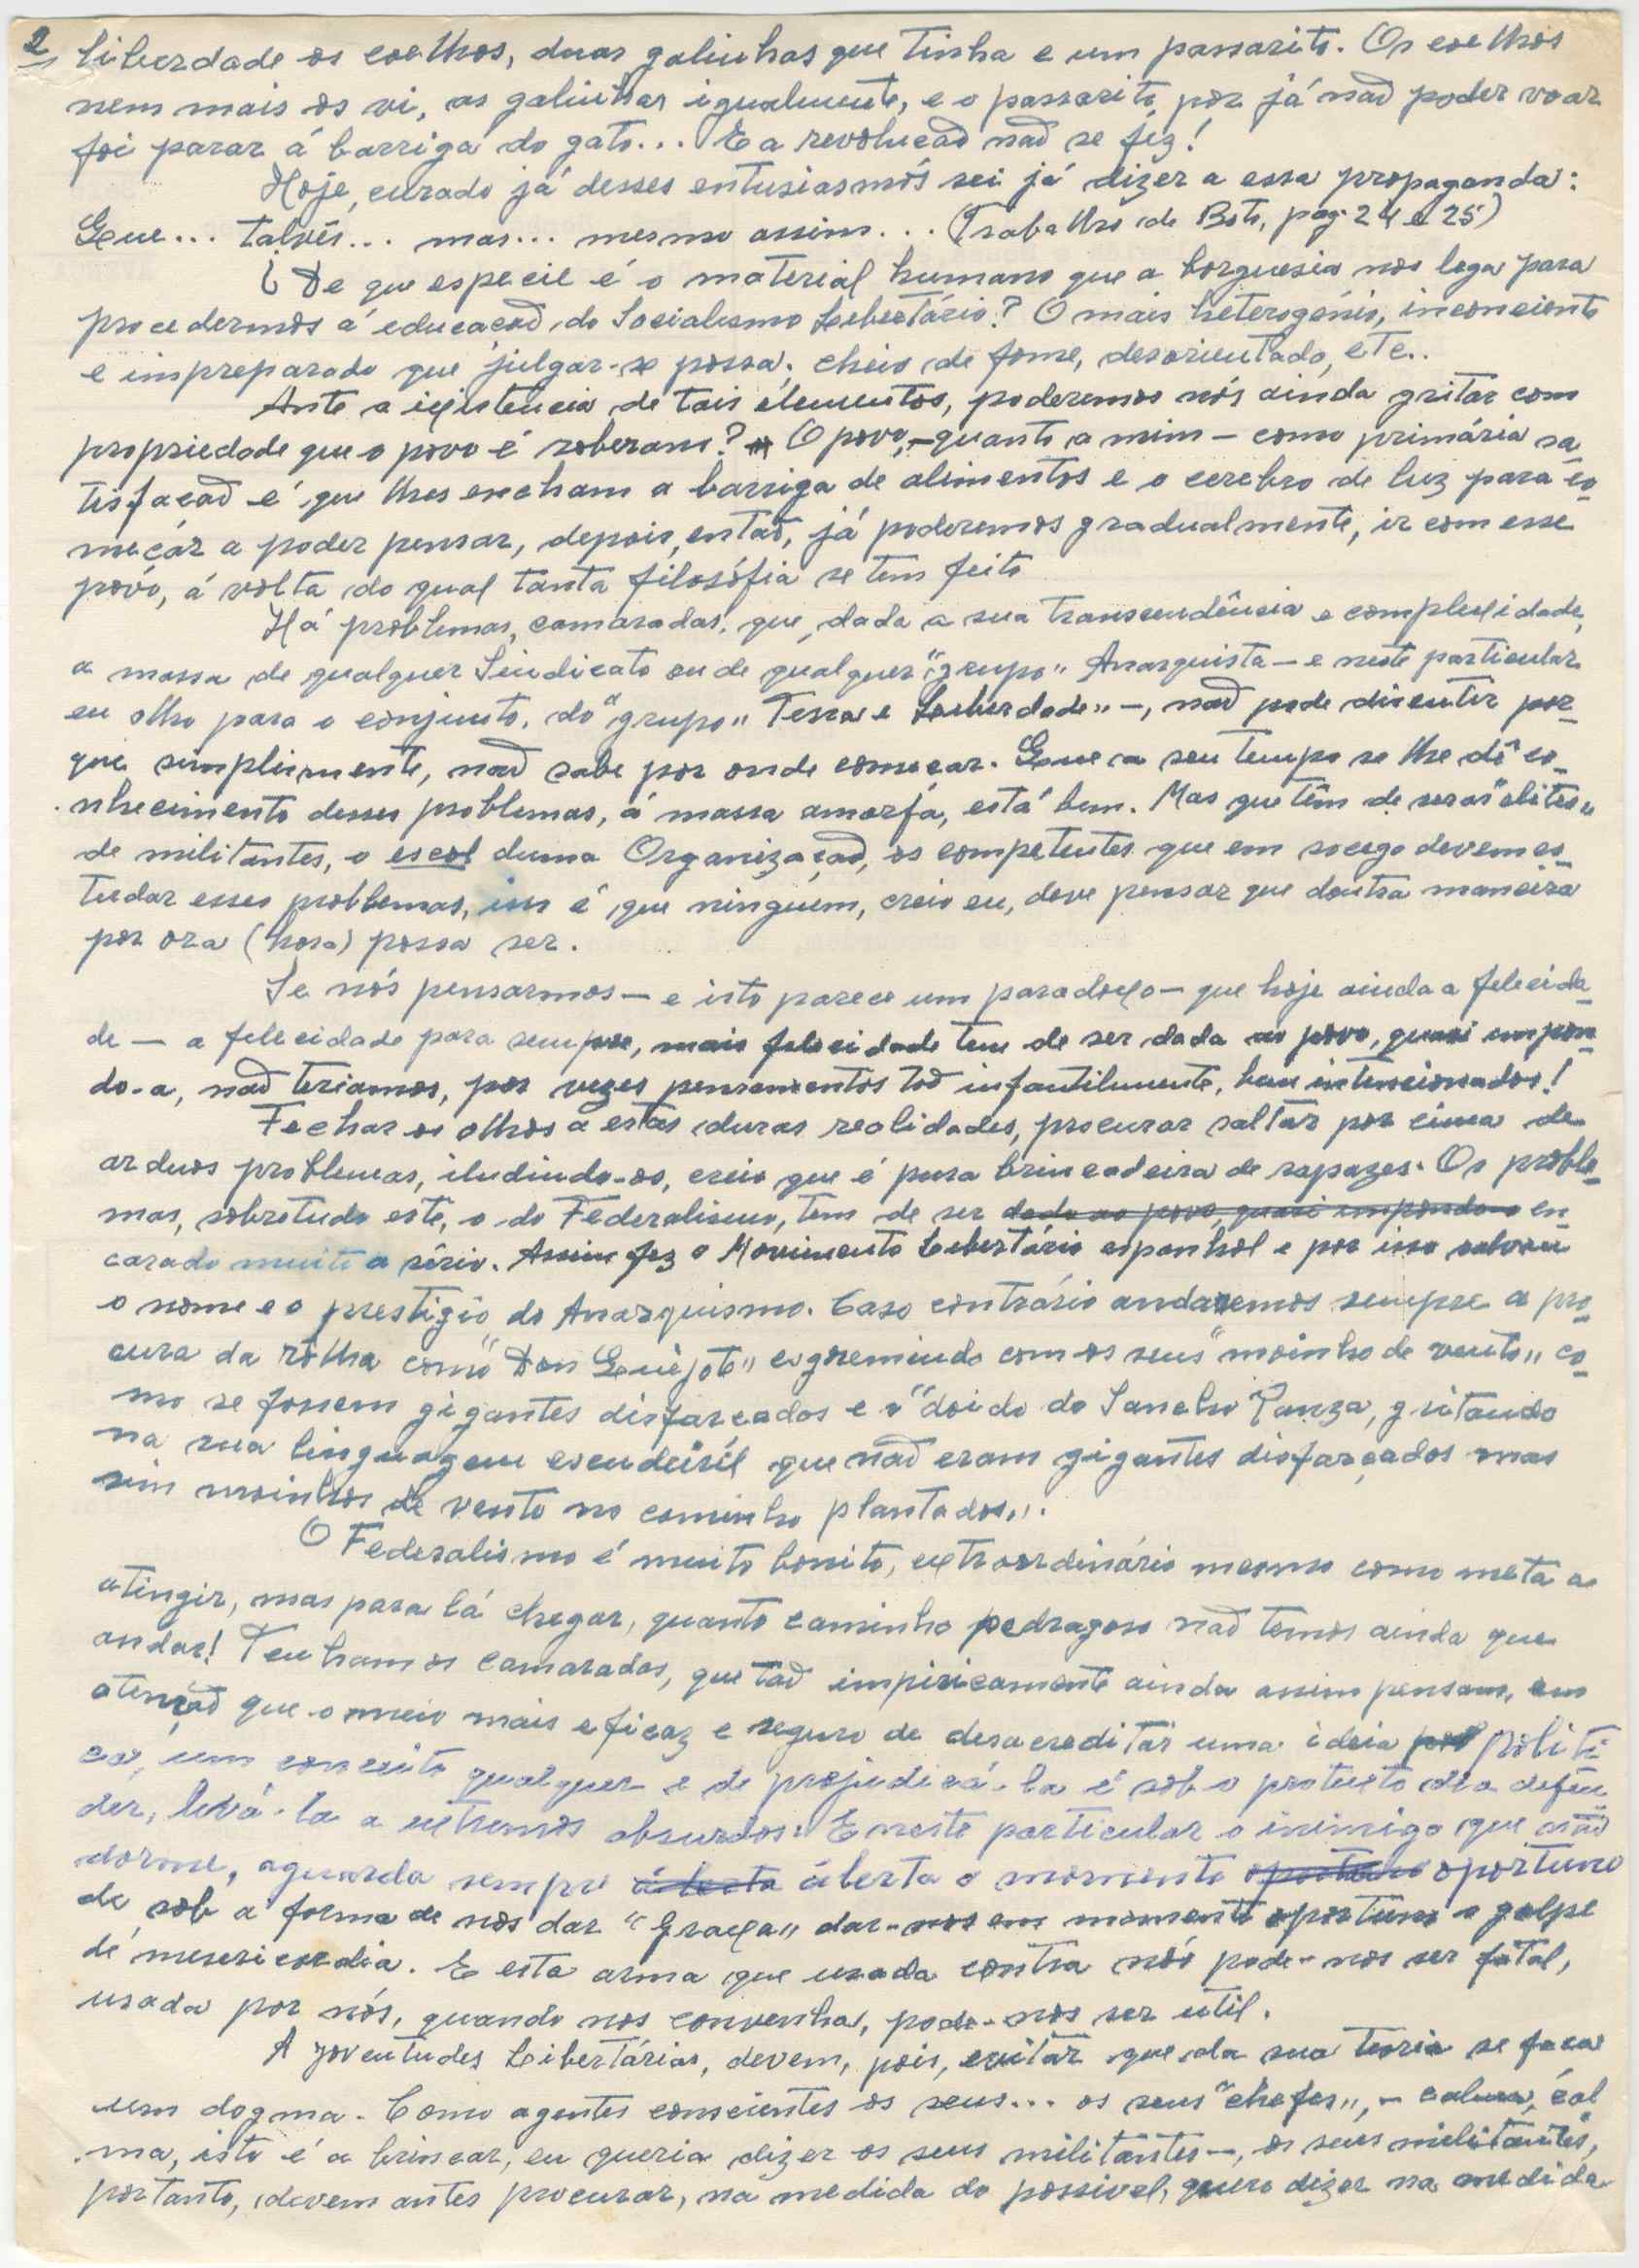 2 liberdade os coelhos, duas galinhas que tinha e um passarito. Os coelhos
nem mais os vi, as galinhas igualmente, e o passarito por já naõ poder voar
foi parar á barriga do gato... E a revolucaõ naõ se fêz!
Hoje, curado já desses entusiasmós sei já dizer a essa propaganda:
Que... talvês... mas... mesmo assim... (Trabalho de Boto, pag. 24 e 25)
¿ De que especie é o material humano que a borguesia nos lega para
procedermos á educacaõ do Socialismo Libertário? O mais heterogénio, inconciente
e impreparado que julgar-se possa; cheio de fome, desorientado, etc..
Ante a ixistencia de tais elementos, poderemos nós ainda gritar com
propriedade que o povo é soberano? O povo, - quanto a mim - como primária sa-
tisfacaõ é que lhes encham a barriga de alimentos e o cerebro de luz para co-
meçár a poder pensar, depois, entaõ, já poderemos gradualmente, ir com esse
povo, á volta do qual tanta filosófia se tem feito
Há problemas, camaradas, que, dada a sua transcendência e complexidade,
a massa de qualquer Sindicato ou de qualquer "grupo" Anarquista - e neste particular
eu olho para o conjunto, do "grupo" Terra e Liberdade" -, naõ pode discutir por-
que simplismente, naõ sabe por onde comecar. Que a seu tempo se lhe dê co-
nhecimento desses problemas, á massa amorfa, está bem. Mas que têm de ser as "elites"
de militantes, o escol duma Organizaçaõ, os competentes que em socego devem es-
tudar esses problemas, isso é que ninguém, creio eu, deve pensar que doutra maneira
por ora (hora) possa ser.
Se nós pensarmos - e isto parece um paradoxo - que hoje ainda a felecida-
de - a felecidade para sempre, mais felecidade tem de ser dada ao povo, quasi impon-
do-a, naõ teriamos, por vezes pensamentos taõ infantilmente, bem intencionados!
Fechar os olhos a estas duras realidades, procurar saltar por cima de
arduos problemas, iludindo-os, creio que é pura brincadeira de rapazes. Os proble-
mas, sobretudo este, o do Federalismo, tem de ser dado ao povo, quasi impondo-o en-
carado muito a sério. Assim fez o Movimento Libertário espanhol e por isso salvou
o nome e o prestigio do Anarquismo. Caso contrário andaremos sempre a pro-
cura da rôlha como "Don Quejote" esgremindo com os seus "moinho de vento" co-
mo se fossem gigantes disfarcados e o "doido do Sancho Panza, gritando
na sua linguagem escudeiril que naõ eram gigantes disfarçados mas
sim moinhos de vento no caminho plantados".
O Federalismo é muito bonito, extraordinário mesmo como meta a
atingir, mas para lá chegar, quanto caminho pedragoso naõ temos ainda que
andar! Tenham os camaradas, que taõ impiricamente ainda assim pensam, em
atençaõ que o meio mais eficaz e seguro de desacreditar uma ideia politi-
ca, um conceito qualquer e de prejudicá-la é sob o pretexto de a defen-
der, levá-la a extremos absurdos. E neste particular o inimigo que naõ
dorme, aguarda sempre álerta o momento oportuno
de sob a forma de nos dar "Graxa" dar-nos em momento oportuno o golpe
de mesericordia. E esta arma que usada contra nós pode-nos ser fatal,
usada por nós, quando nos convenha, pode-nos ser util.
A Joventudes Libertárias, devem, pois, evitar que da sua teoria se faca
um dogma. Como agentes conscientes os seus... os seus "chefes", - calma, cal
ma, isto é a brincar, eu queria dizer os seus militantes -, os seus militantes,
portanto, devem antes procurar, na medida do possivel, quero dizer na medida